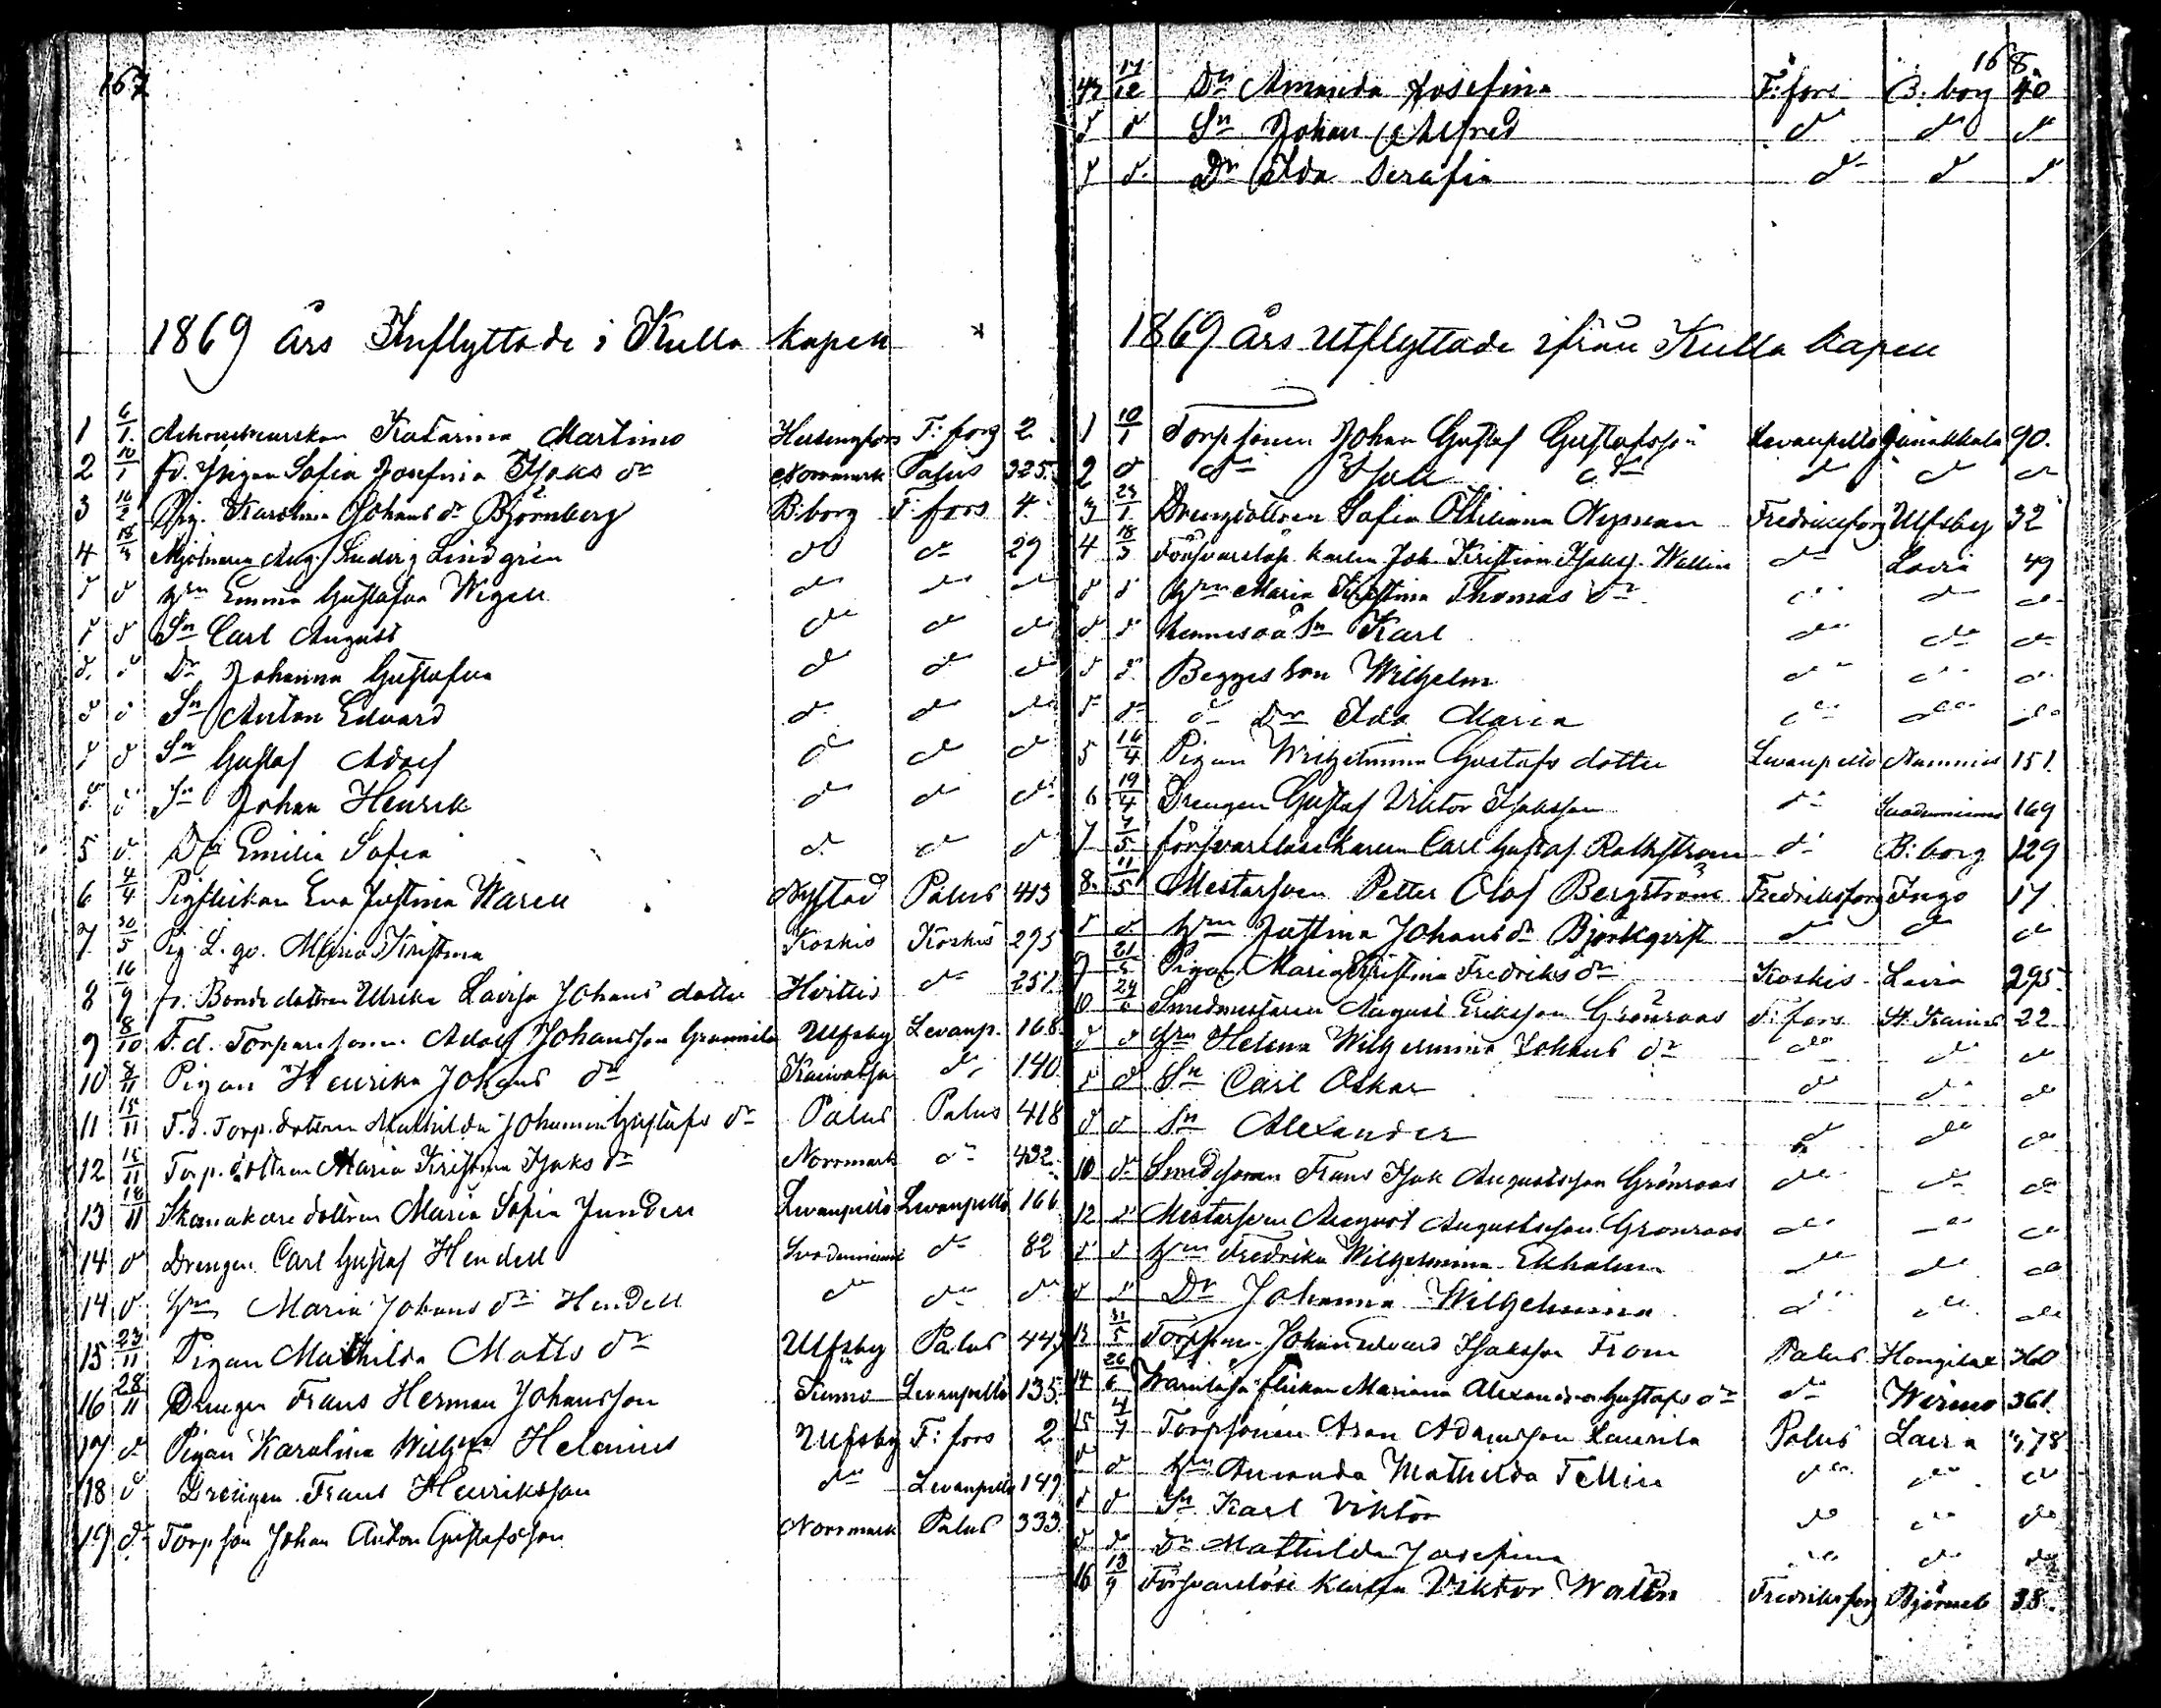 167
1869 års Inflyttade i Kulla Kapell
1 6/1 Katarina Martino Helsingfors F:fors 2
2 10/1 fd. Pigan Sofia Josefina Isaks dr Norrmark Palus 325
3 16/2 Pig. Karolina Johans dr Björnberg B:borg F:fors 4
4 Mjölnaren Aug. Ludvig Lindgrén do do 29
d d Hn Emma Gustafva Wigell do do do
d d Sn Carl August do do do
d d Dr Johanna Gustafva do do do
d d Sn Anton Edvard do do do
d d Sn Gustaf Adolf do do do
d d Sn Johan Henrik do do do
5 d Dr Emilia Sofia do do do
6 4/4 Pigflickan Eva Justina Warell Nystad Palus 413
7 30/5 Pig. Maria Kristina Koskis Koskis 295
8 16/9 fd. Bondedottren Ulrika Lovisa Johans dotter Hvittis do 251
9 8/10 F.d. Torparesonen Adolf Johansson Grannila Ulfsby Levanp. 168
10 8/11 Pigan Henrika Johans dr do 140
11 15/11 F.d. Torp.dottren Mathilda Johanna Gustafs dr Palus Palus 418
12 15/11 Torp.dottren Maria Kristina Isaks dr Norrmark do 432
13 18/11 dottren Maria Sofia Jundell Levanpelto Levanpelto 166
14 d Drengen Carl Gustaf Hendell Suodenniemi do 82
14 d Hn Maria Johans dr Hendell do do do
15 23/11 Pigan Mathilda Matts dr Ulfsby Palus 447
16 28/11 Drengen Frans Herman Johansson Kumo Levanpelto 135
17 d Pigan Karolina Wilhna Helenius Ulfsby F:fors 2
18 d Drengen Frans Henriksson do Levanpelto 149
19 d Torpson Johan Anton Gustafsson Norrmark Palus 333
168
42 17/12 Dr Amanda Josefina F:fors B:borg 40
d d Sn Johan Alfred do do do
d d Dr Ida Serafia do do do
1869 års Utflyttade ifrån Kulla Kapell
1 10/1 Torpsonen Johan Gustaf Gustafsson Levanpelto Janakkala 90
2 d do Isak do do do do
3 23/1 Drengdottren Sofia Nyman Fredriksfors Ulfsby 32
4 18/3 Försvarslöse karlen Joh. Kristian Isakss. Wallin do Lavia 49
d d Hn Maria Kristina Thomas dr do do do
d d hennes oä Sn Karl do do do
d d Begges Son Wilhelm do do do
d d d Dr Ida Maria do do do
5 16/4 Pigan Wilhelmina Gustafs dotter Levanpelto 151
6 19/4 Drengen Gustaf Viktor Isaksson do Suodenniemi 169
7 7/5 försvarslöse karlen Carl Gustaf Rothström do B:borg 129
8 11/5 Mestarsven Petter Olof Bergström Fredriksfors Ingo 17
d d Hn Justina Johans dr Björkqvist do do do
9 21/5 Pigan Maria Kristina Fredriks dr Koskis Lavia 295
10 Smedmestaren August Eriksson Grönroos F:fors St. Karins 22
d d Hn Helena Wilhelmina Johans dr do do do
d d Sn Carl Oskar do do do
d d Sn Alexander do do do
10 d Smedsonen Frans Isak Augustsson Grönroos do do do
12 d Mestarsven August Augustsson Grönroos do do do
d d Hn Fredrika Wilhelmina Ekholm do do do
d d Dr Johanna Wilhelmina do do do
13 31/5 Torpson Johan Edvard Isaksson From Palus Hongilax 360
14 26/6 flickan Mariana Alexandra Gustafs dr do Wirmo 361
15 Torpsonen Aron Adamsson Laurila Palus Lavia 378
d d Hn Amanda Mathilda Tellin do do do
d d Sn Karl Viktor do do do
d d Dr Mathilda Josefina do do do
16 13/9 Försvarslöse karlen Viktor Walen Fredriksfors Björneb 38